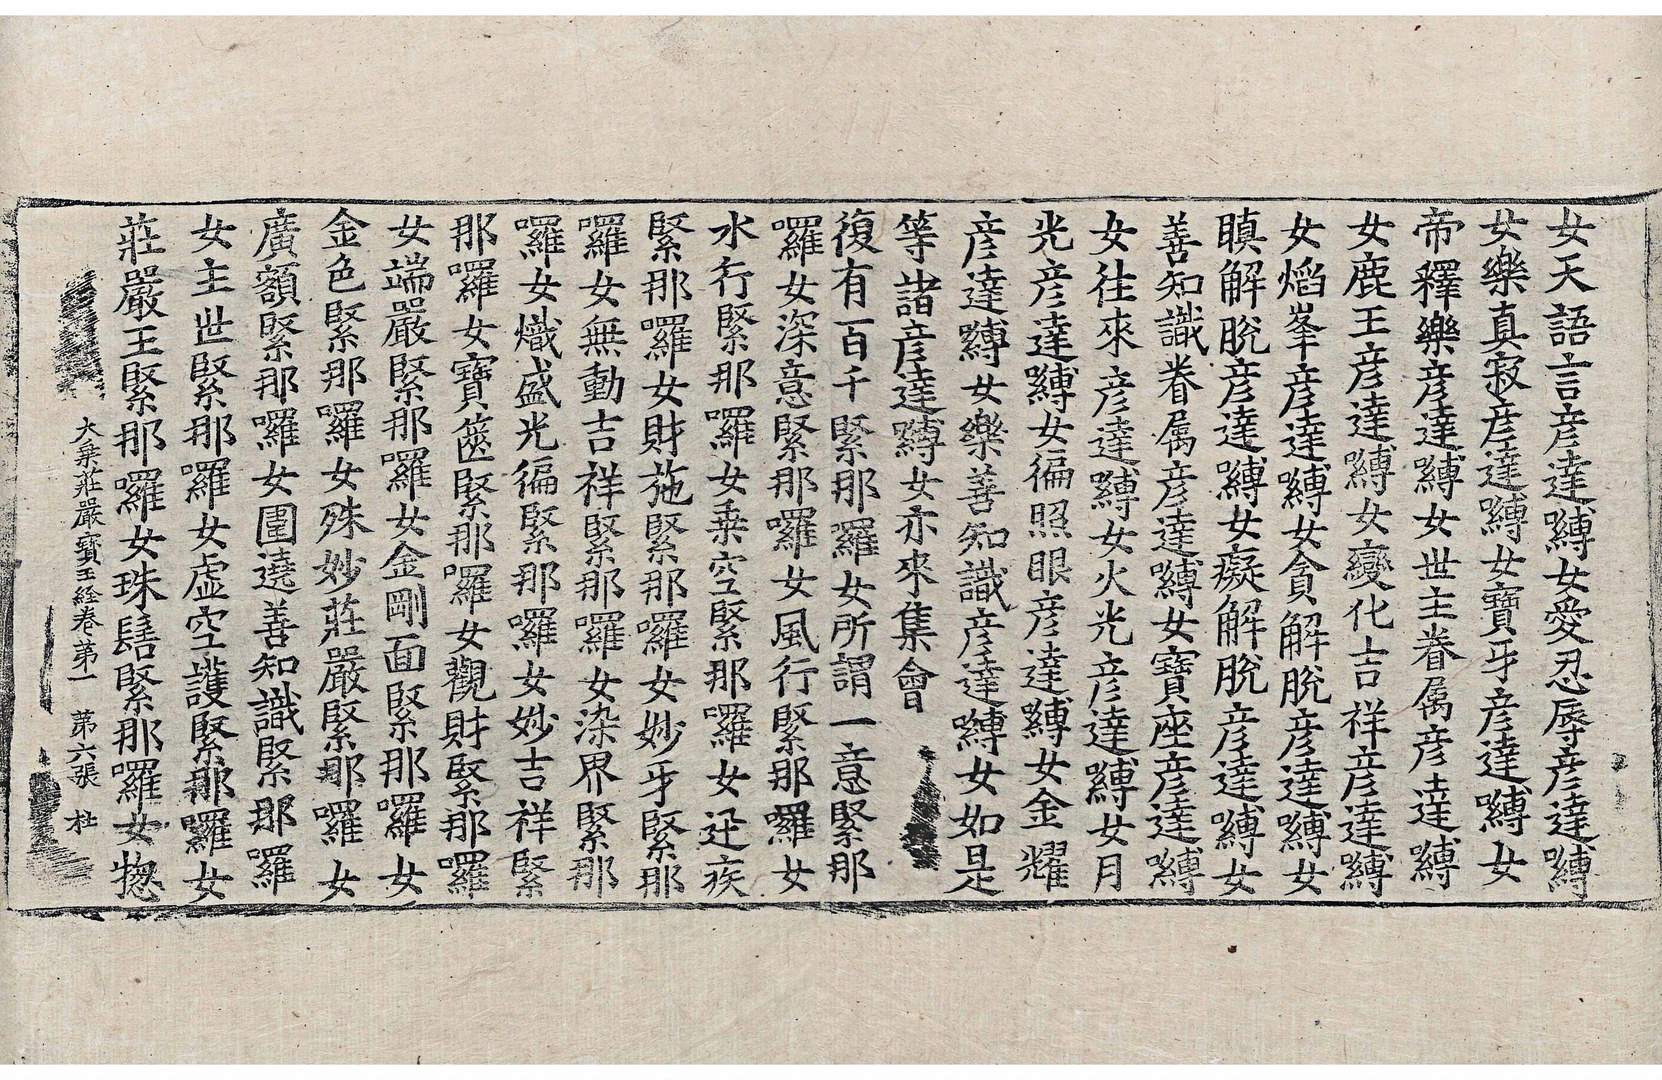 女天語言彦達嚩女愛忍辱彦達嚩
女樂真寂彦達嚩女寶牙彦達嚩女
帝釋樂彦達嚩女世主眷属彦達嚩
女鹿王彦達嚩女變化吉祥彦達嚩
女焰峯彦達嚩女貪解脫彦達嚩女
瞋解脫彦達嚩女癡解脫彦達嚩女
善知識眷属彦達嚩女寶座彦達嚩
女往來彦達嚩女火光彦達嚩女月
光彦達嚩女徧照眼彦達嚩女金耀
彦達嚩女樂善知識彦達嚩女如是
等諸彦達嚩女亦來集會
復有百千緊那囉女所謂一意緊那
囉女深意緊那囉女風行緊那囉女
水行緊那囉女乗空緊那囉女迅疾
緊那囉女財施緊那囉女妙牙緊那
囉女無動吉祥緊那囉女染界緊那
囉女熾盛光徧緊那囉女妙吉祥緊
那囉女寶篋緊那囉女觀財緊那囉
女端嚴緊那囉女金剛面緊那囉女
金色緊那囉女殊妙莊嚴緊那囉女
廣額緊那囉女圍遶善知識緊那囉
女主世緊那囉女虚空護緊那囉女
莊嚴王緊那囉女珠髻緊那囉女惣
大乗莊嚴寶王經卷第一 第六張 杜